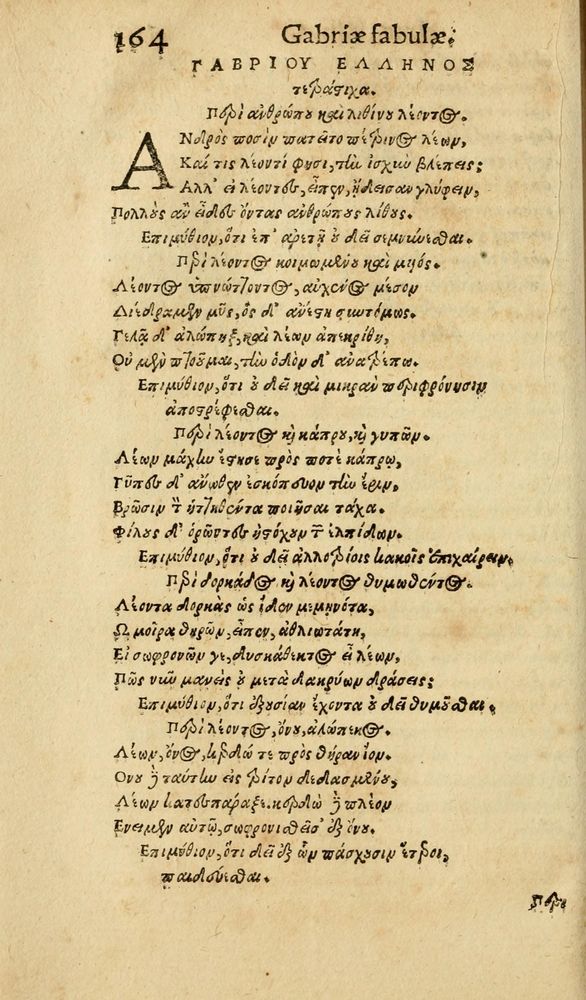 164 Gabriæ fabulæ.
ΓΑΒΡΙΟΥ ΕΛΛΗΝΟΣ
τετράστιχα.
Περὶ ἀνθρώπου καὶ λιθίνου λέοντος.
Ανδρὸς ποσὶν πατεῖτο πέτρινος λέων,
Καί τις λέοντί φησι, τὴν ἰσχὺν βλέπεις;
Αλλ' εἰ λέοντες, εἶπεν, ᾔδεισαν γλύφειν,
Πολλοὺς ἂν εἶδες ὄντας ἀνθρώπους λίθους.
Επιμύθιον, ὅτι ἐπ' ἀρετῇ οὐ δεῖ σεμνύνεσθαι.
Περὶ λέοντος κοιμωμένου καὶ μυός.
Λέοντος ὑπνώττοντος, αὐχένος μέσον
Διέδραμεν μῦς, ὃς δ' ἀνέστη συντόμως.
Γελᾷ δ' ἀλώπηξ, καὶ λέων ἀπεκρίθη,
Οὐ μῦν πτοοῦμαι, τὴν ὁδὸν δ' ἀνατρέπω.
Επιμύθιον, ὅτι οὐ δεῖ καὶ μικρὰν περιφρόνησιν
ἀποστρέφεσθαι.
Περὶ λέοντος καὶ κάπρου, καὶ γυπῶν.
Λέων μάχην ἔστησε πρός ποτε κάπρῳ,
Γύπες δ' ἄνωθεν ἐσκόπευον τὴν ἔριν,
Βρῶσιν τὸν ἡττηθέντα ποιῆσαι τάχα.
Φίλους δ' ὁρῶντες ἠστόχουν τῶν ἐλπίδων.
Επιμύθιον, ὅτι οὐ δεῖ ἀλλοτρίοις κακοῖς ἐπιχαίρειν.
Περὶ δορκάδος καὶ λέοντος θυμωθέντος.
Λέοντα δορκὰς ὡς ἴδεν μεμηνότα,
Ω μοῖρα θηρῶν, εἶπεν, ἀθλιωτάτη,
Εἰ σωφρονῶν γε, δυσκάθεκτος εἶ λέων,
Πῶς νῦν μανεὶς οὐ μετὰ δακρύων δράσεις;
Επιμύθιον, ὅτι ἐξουσίαν ἔχοντα οὐ δεῖ θυμοῦσθαι.
Περὶ λέοντος, ὄνου, ἀλώπεκος.
Λέων, ὄνος, κερδώ τε πρὸς θήραν ἴον.
Ονου δὲ ταύτην εἰς τρίτον δεδασμένου,
Λέων κατεσπάραξε. κερδὼ δὲ πλέον
Ενειμεν αὐτῷ, σωφρονισθεῖσ' ἐξ ὄνου.
Επιμύθιον, ὅτι δεῖ ἐξ ὧν πάσχουσιν ἕτεροι,
παιδεύεσθαι.
Περὶ